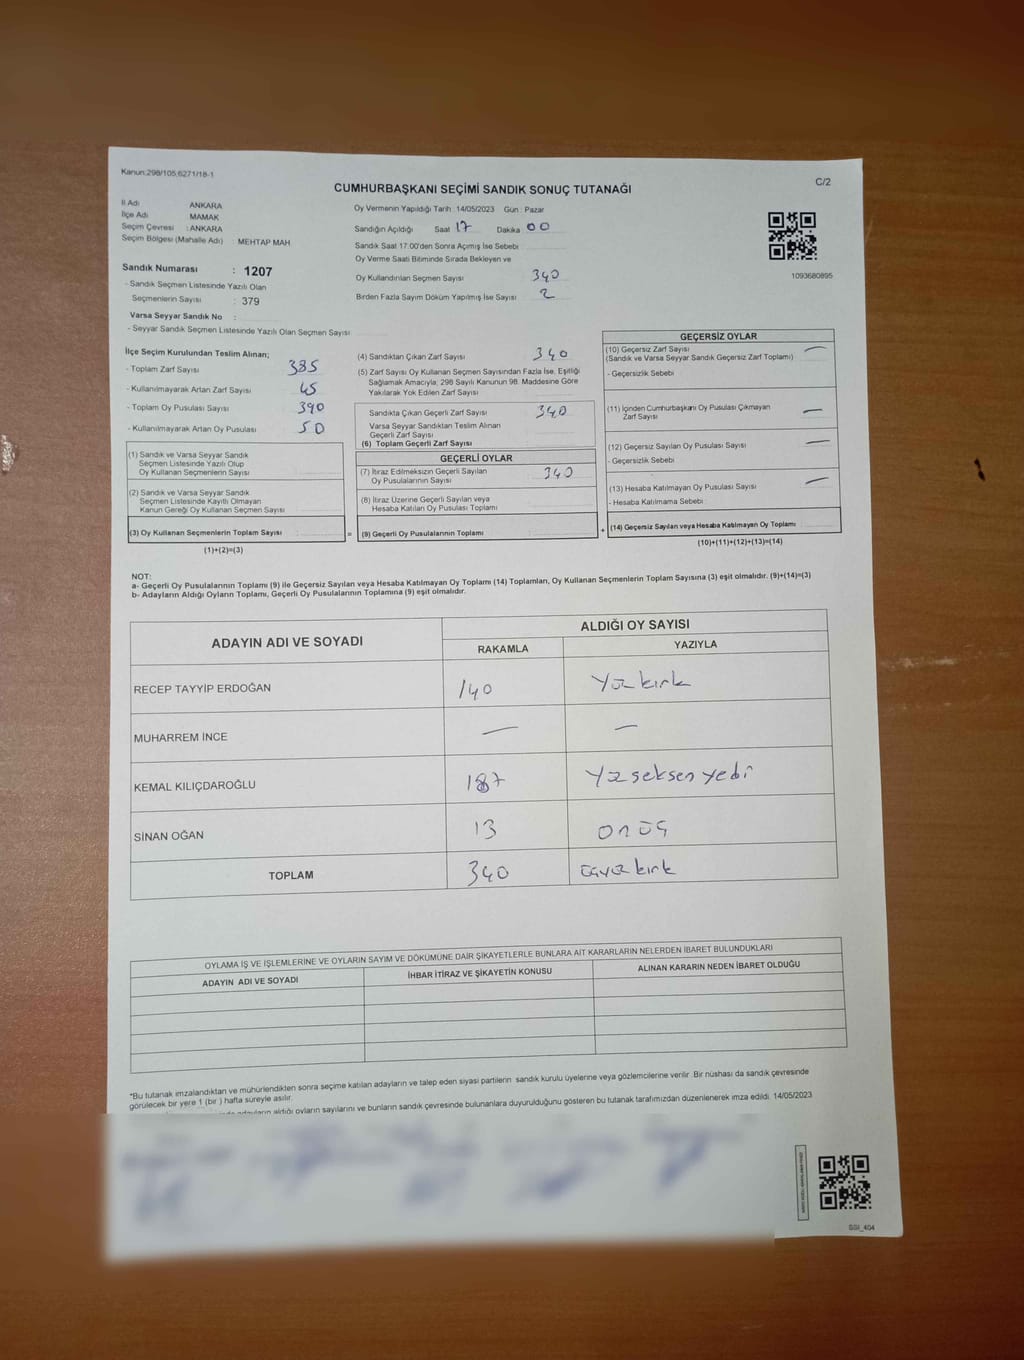 Kanun:298/105,6271/18-1
C/2
CUMHURBAŞKANI SEÇİMİ SANDIK SONUÇ TUTANAĞI
İl Adı ANKARA
İlçe Adı MAMAK
Seçim Çevresi : ANKARA
Seçim Bölgesi (Mahalle Adı) : MEHTAP MAH
Sandık Numarası : 1207
- Sandık Seçmen Listesinde Yazılı Olan
Seçmenlerin Sayısı : 379
Varsa Seyyar Sandık No :
- Seyyar Sandık Seçmen Listesinde Yazılı Olan Seçmen Sayısı
Oy Vermenin Yapıldığı Tarih: 14/05/2023 Gün : Pazar
Sandığın Açıldığı Saat 17 Dakika 00
Sandık Saat 17:00'den Sonra Açımış İse Sebebi
Oy Verme Saati Bitiminde Sırada Bekleyen ve
Oy Kullandırılan Seçmen Sayısı 340
Birden Fazla Sayım Döküm Yapılmış İse Sayısı 2
1093680895
İlçe Seçim Kurulundan Teslim Alınan;
- Toplam Zarf Sayısı 385
- Kullanılmayarak Artan Zarf Sayısı 45
- Toplam Oy Pusulası Sayısı 390
- Kullanılmayarak Artan Oy Pusulası 50
(1) Sandık ve Varsa Seyyar Sandık
Seçmen Listesinde Yazılı Olup
Oy Kullanan Seçmenlerin Sayısı
(2) Sandık ve Varsa Seyyar Sandık
Seçmen Listesinde Kayıtlı Olmayan
Kanun Gereği Oy Kullanan Seçmen Sayısı
(3) Oy Kullanan Seçmenlerin Toplam Sayısı
(1)+(2)=(3)
(4) Sandıktan Çıkan Zarf Sayısı 340
(5) Zarf Sayısı Oy Kullanan Seçmen Sayısından Fazla İse, Eşitliği
Sağlamak Amacıyla; 298 Sayılı Kanunun 98. Maddesine Göre
Yakılarak Yok Edilen Zarf Sayısı
Sandıkta Çıkan Geçerli Zarf Sayısı 340
Varsa Seyyar Sandıktan Teslim Alınan
Geçerli Zarf Sayısı
(6) Toplam Geçerli Zarf Sayısı
GEÇERLİ OYLAR
(7) İtiraz Edilmeksizin Geçerli Sayılan
Oy Pusulalarının Sayısı 340
(8) İtiraz Üzerine Geçerli Sayılan veya
Hesaba Katılan Oy Pusulası Toplamı
= (9) Geçerli Oy Pusulalarının Toplamı
GEÇERSİZ OYLAR
(10) Geçersiz Zarf Sayısı —
(Sandık ve Varsa Seyyar Sandık Geçersiz Zarf Toplamı)
- Geçersizlik Sebebi
(11) İçinden Cumhurbaşkanı Oy Pusulası Çıkmayan —
Zarf Sayısı
(12) Geçersiz Sayılan Oy Pusulası Sayısı —
- Geçersizlik Sebebi
(13) Hesaba Katılmayan Oy Pusulası Sayısı —
- Hesaba Katılmama Sebebi
+ (14) Geçersiz Sayılan veya Hesaba Katılmayan Oy Toplamı
(10)+(11)+(12)+(13)=(14)
NOT:
a- Geçerli Oy Pusulalarının Toplamı (9) ile Geçersiz Sayılan veya Hesaba Katılmayan Oy Toplamı (14) Toplamları, Oy Kullanan Seçmenlerin Toplam Sayısına (3) eşit olmalıdır. (9)+(14)=(3)
b- Adayların Aldığı Oyların Toplamı, Geçerli Oy Pusulalarının Toplamına (9) eşit olmalıdır.
ADAYIN ADI VE SOYADI
ALDIĞI OY SAYISI
RAKAMLA YAZIYLA
RECEP TAYYİP ERDOĞAN 140 Yüzkırk
MUHARREM İNCE — —
KEMAL KILIÇDAROĞLU 187 Yüzseksenyedi
SİNAN OĞAN 13 onüç
TOPLAM 340 üçyüzkırk
OYLAMA İŞ VE İŞLEMLERİNE VE OYLARIN SAYIM VE DÖKÜMÜNE DAİR ŞİKAYETLERLE BUNLARA AİT KARARLARIN NELERDEN İBARET BULUNDUKLARI
ADAYIN ADI VE SOYADI İHBAR İTİRAZ VE ŞİKAYETİN KONUSU ALINAN KARARIN NEDEN İBARET OLDUĞU
*Bu tutanak imzalandıktan ve mühürlendikten sonra seçime katılan adayların ve talep eden siyasi partilerin sandık kurulu üyelerine veya gözlemcilerine verilir. Bir nüshası da sandık çevresinde
görülecek bir yere 1 (bir ) hafta süreyle asılır.
adayların aldığı oyların sayılarını ve bunların sandık çevresinde bulunanlara duyurulduğunu gösteren bu tutanak tarafımızdan düzenlenerek imza edildi. 14/05/2023
SSI_404